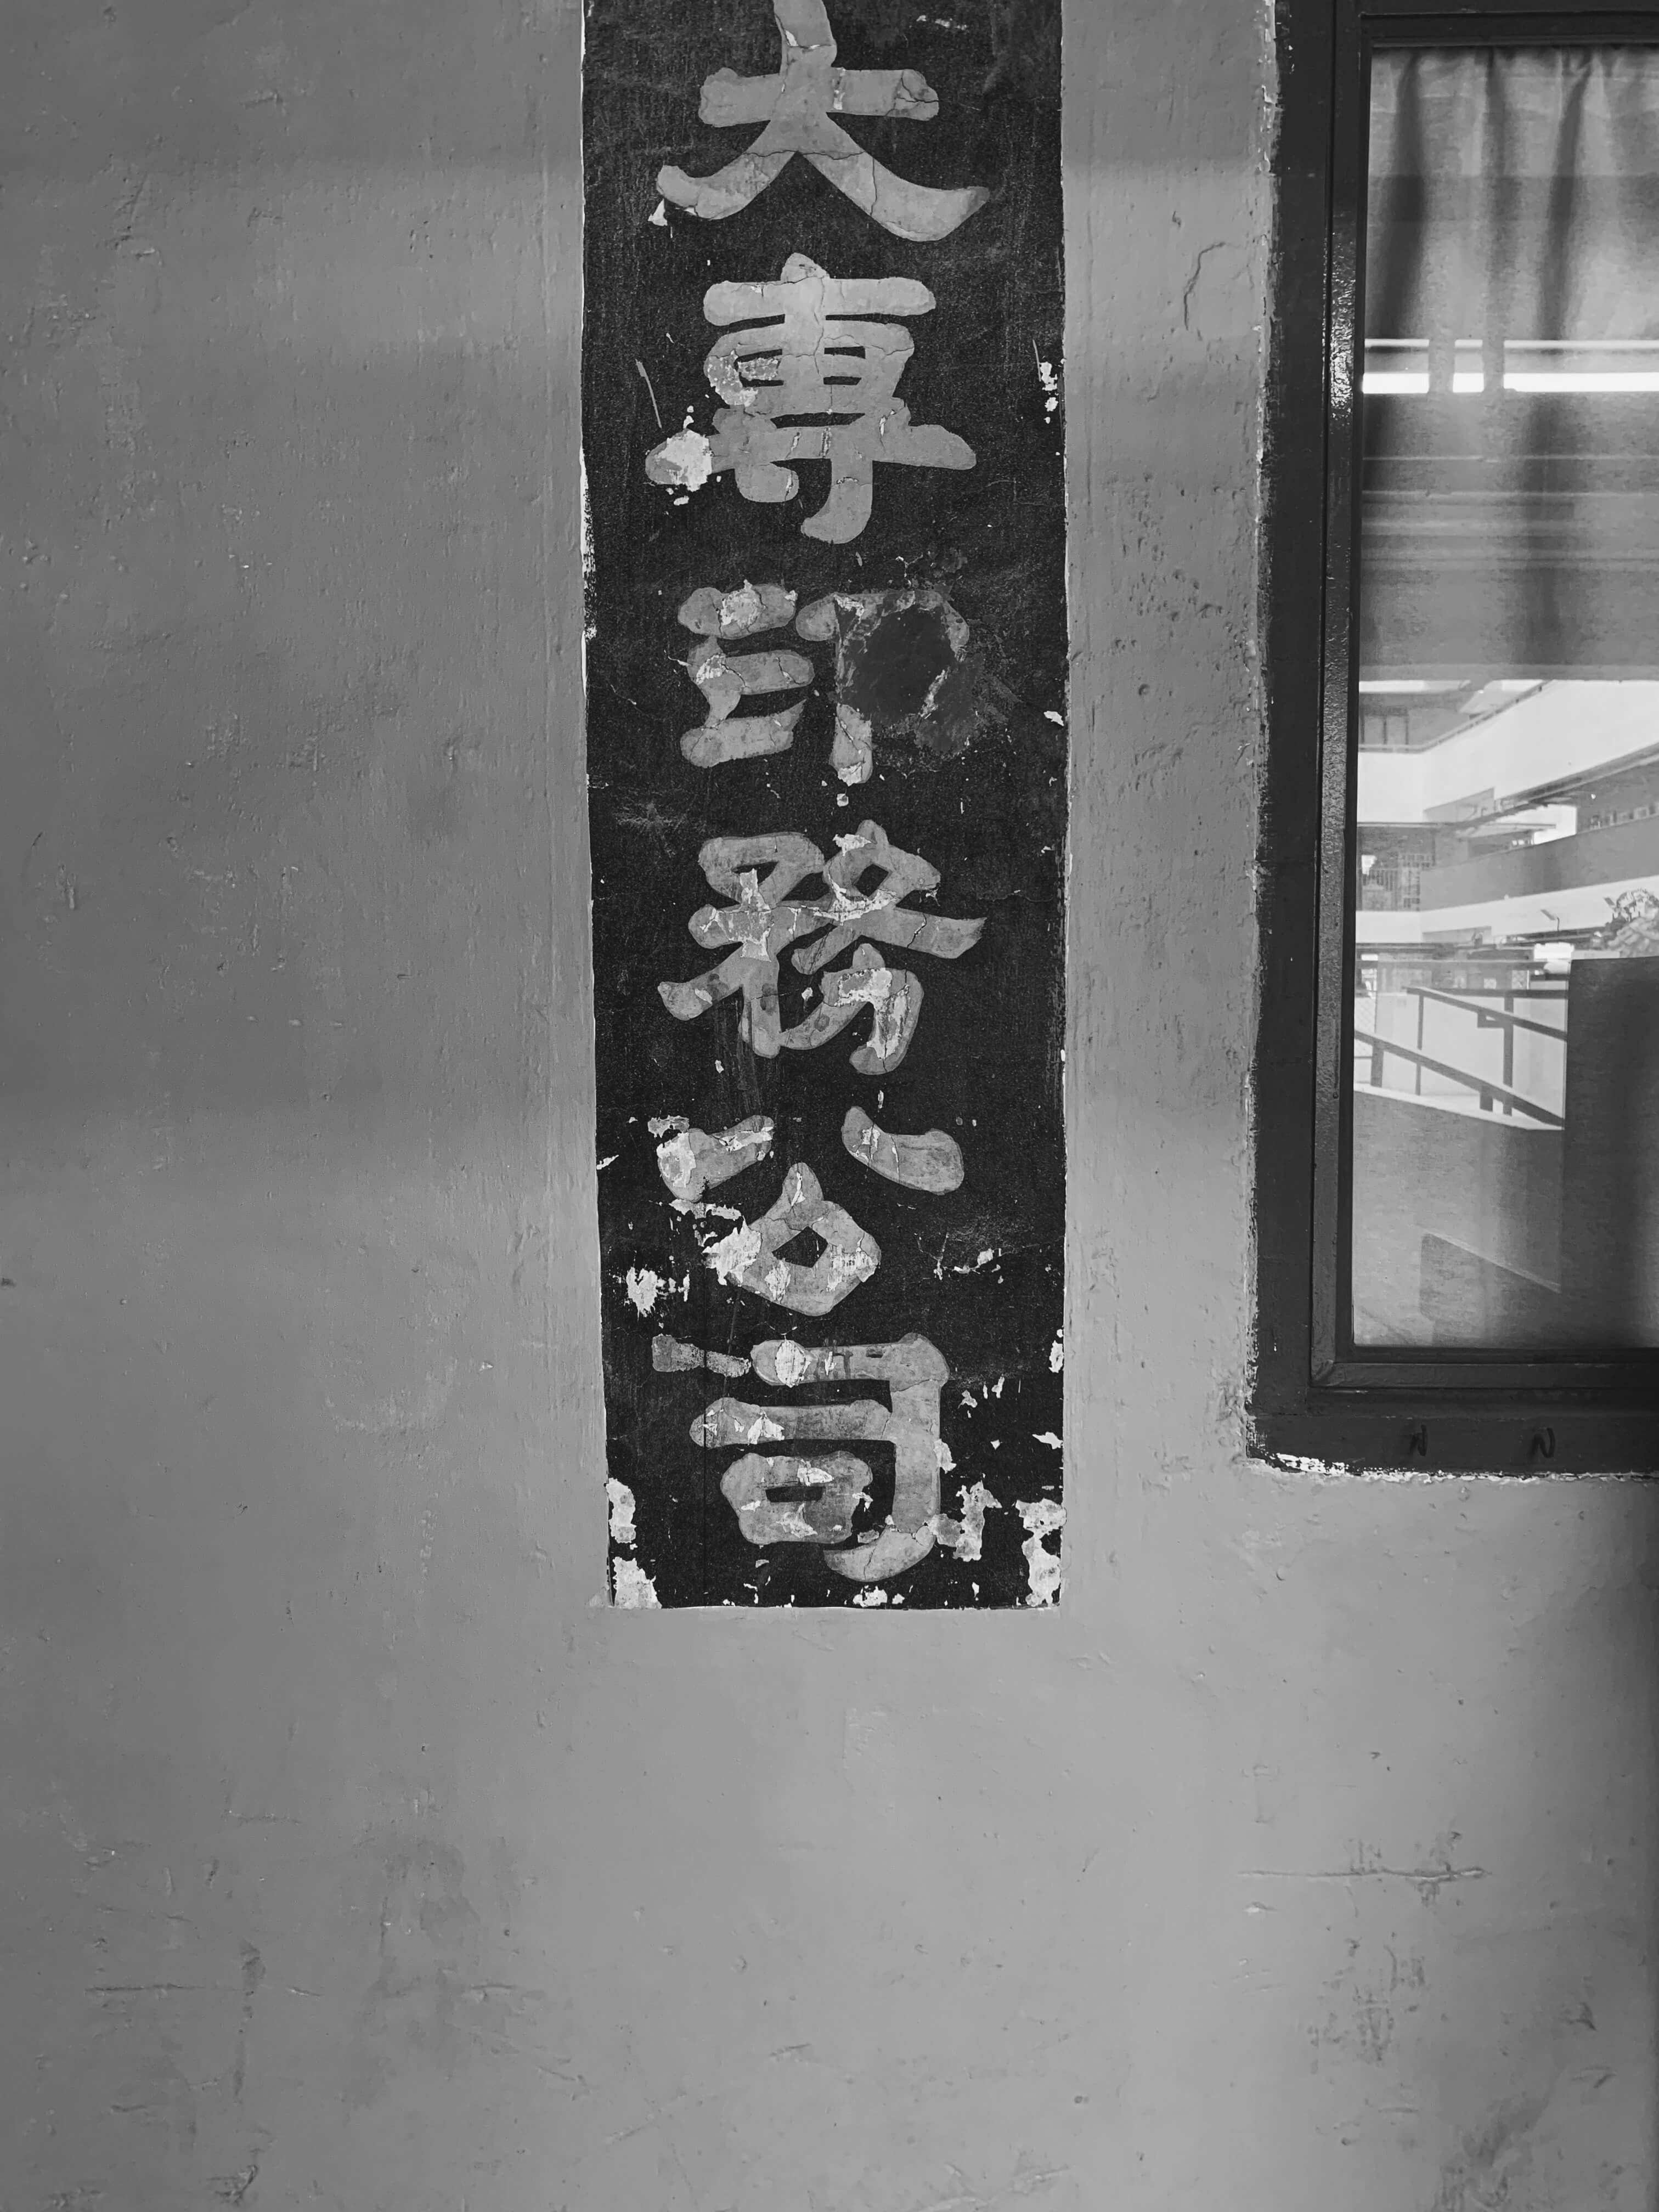 大專印務公司